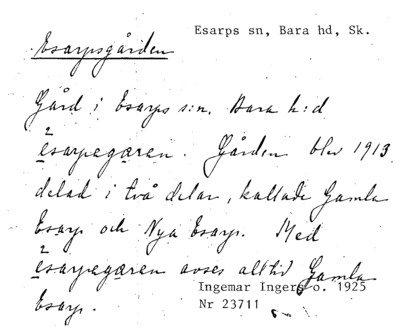 Esarps sn, Bara hd, Sk.
Esarpsgården
Gård i Esarps s:n. Bara h:d
ésarpegæren. Gården blev 1913
delad i två delar, kallade Gamla
Esarp och Nya Esarp. Med
ésarpegæren avses alltid Gamla
Esarp.
Ingemar Ingers o. 1925
Nr 23711